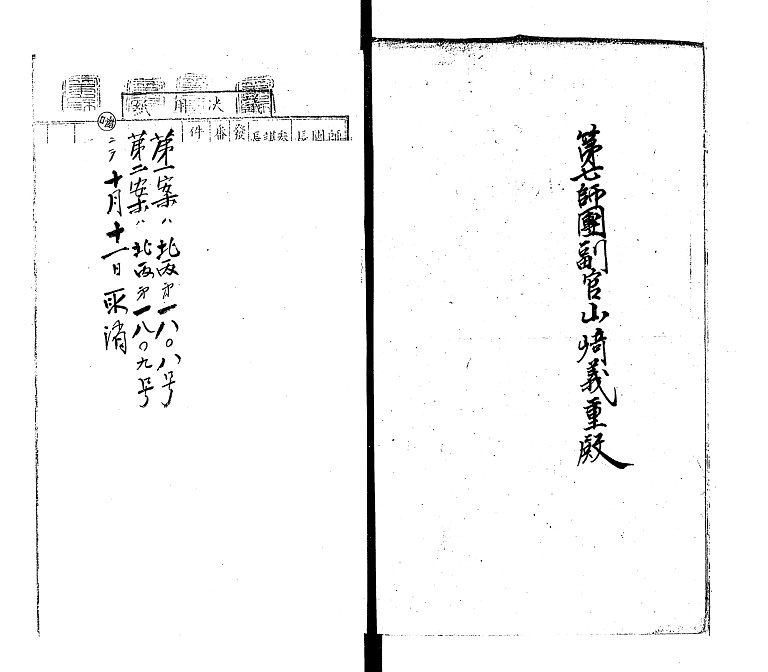 第七師團副官山﨑義重殿
決
師團長
參謀長
發
番
件
第一案ハ北西第一八〇八号
第二案ハ北西第一八〇九号
ニテ十月十一日取消